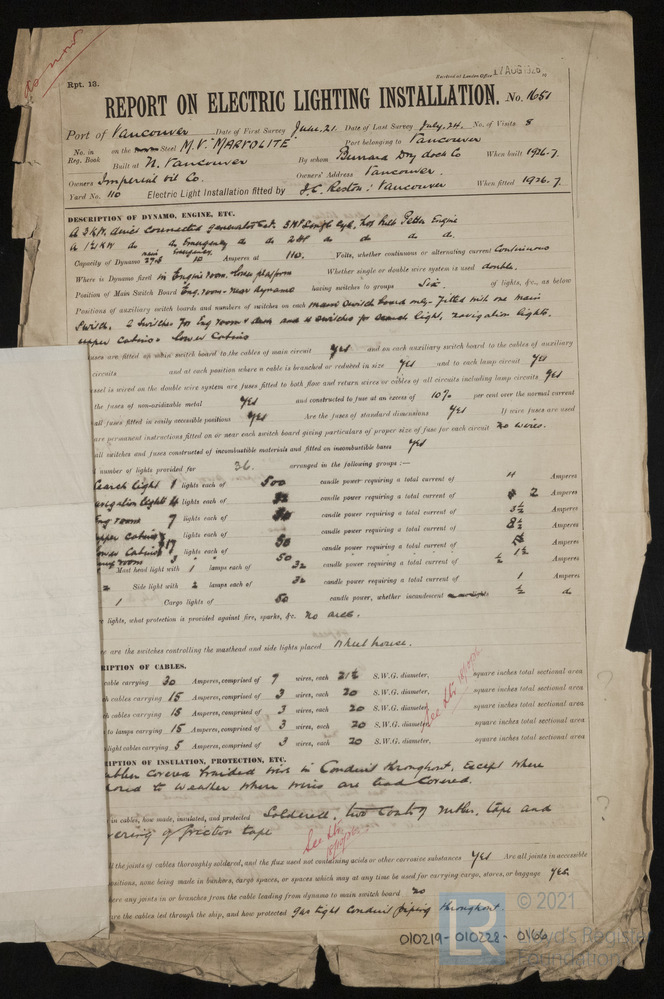 So now
Rpt. 13.
Received at London Office 17 AUG 1926
REPORT ON ELECTRIC LIGHTING INSTALLATION. No. 1651
Port of Vancouver Date of First Survey June, 21. Date of Last Survey July, 24. No. of Visits 8
No. in Reg. Book on the Iron or Steel M.V. "MARVOLITE" Port belonging to Vancouver
Built at N. Vancouver By whom Burrard Dry dock Co When built 1926-7
Owners Imperial Oil Co. Owners' Address Vancouver
Yard No. 110 Electric Light Installation fitted by Vancouver When fitted 1926.7
DESCRIPTION OF DYNAMO, ENGINE, ETC.
A 3 K.W. direct connected generator set. Engine
Emergency
Capacity of Dynamo Amperes at 110. Volts, whether continuous or alternating current Continuous
Where is Dynamo fixed in Engine room, lower platform Whether single or double wire system is used double.
Position of Main Switch Board Eng. room - near dynamo having switches to groups Six of lights, &c., as below
Positions of auxiliary switch boards and numbers of switches on each main switch board only - Fitted with one main
Switch, 2 Switches for Eng room & and 4 switches for Search light, navigation lights,
upper cabins & Lower Cabins
fuses are fitted on main switch board to the cables of main circuit yes and on each auxiliary switch board to the cables of auxiliary
circuits and at each position where a cable is branched or reduced in size yes and to each lamp circuit yes
vessel is wired on the double wire system are fuses fitted to both flow and return wires or cables of all circuits including lamp circuits yes
the fuses of non-oxidizable metal yes and constructed to fuse at an excess of 10% per cent over the normal current
all fuses fitted in easily accessible positions yes Are the fuses of standard dimensions yes If wire fuses are used
are permanent instructions fitted on or near each switch board giving particulars of proper size of fuse for each circuit no wires.
all switches and fuses constructed of incombustible materials and fitted on incombustible bases yes
number of lights provided for 36. arranged in the following groups :—
Search light 1 lights each of 500 candle power requiring a total current of 4 Amperes
navigation lights 4 lights each of 32 candle power requiring a total current of 2 Amperes
Eng room 7 lights each of candle power requiring a total current of 3½ Amperes
upper cabins lights each of 50 candle power requiring a total current of 8½ Amperes
Lower Cabins 17 lights each of 50 candle power requiring a total current of Amperes
3 1½
Mast head light with 1 lamps each of 32 candle power requiring a total current of ½ Amperes
2 Side light with 2 lamps each of 32 candle power requiring a total current of 1 Amperes
1 Cargo lights of 50 candle power, whether incandescent or arc lights ½ a
lights, what protection is provided against fire, sparks, &c. No arcs.
are the switches controlling the masthead and side lights placed Wheel house.
DESCRIPTION OF CABLES.
cable carrying 30 Amperes, comprised of 7 wires, each 21½ S.W.G. diameter, square inches total sectional area
cables carrying 15 Amperes, comprised of 3 wires, each 20 S.W.G. diameter, square inches total sectional area
cables carrying 15 Amperes, comprised of 3 wires, each 20 S.W.G. diameter, square inches total sectional area
to lamps carrying 15 Amperes, comprised of 3 wires, each 20 S.W.G. diameter, square inches total sectional area
light cables carrying 5 Amperes, comprised of 3 wires, each 20 S.W.G. diameter, square inches total sectional area
See
DESCRIPTION OF INSULATION, PROTECTION, ETC.
Rubber covered braided wire in Conduit throughout, Except where
to weather where wires are lead Covered.
in cables, how made, insulated, and protected Soldered, two coats of rubber, tape and
covering of friction tape
See
all the joints of cables thoroughly soldered, and the flux used not containing acids or other corrosive substances yes Are all joints in accessible
positions, none being made in bunkers, cargo spaces, or spaces which may at any time be used for carrying cargo, stores, or baggage yes.
there any joints in or branches from the cable leading from dynamo to main switch board no
are the cables led through the ship, and how protected gas tight Conduit piping throughout
© 2021
Lloyd's Register
Foundation
010219-010228-0166